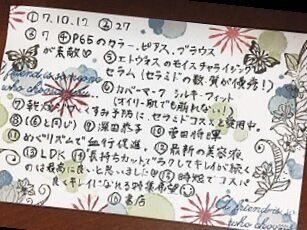 ①7.10.12 ②27
③7 ④P65のカラー、ピアス、ブラウス
が素敵♡ ⑤エトヴォスのモイスチャライジング
セラム(セラミドの数、質が優秀!)
⑥カバーマーク シルキーフィット
(オイリー肌でも崩れない)
⑦乾燥、くすみ予防に、セラミドコスメと併用中。
⑧(⑥と同じ) ⑨深田恭子 ⑩菅田将暉
⑪めぐりズムで血行促進。⑫最新の美容液
⑬LDK ⑭長持ちカットでラクしてキレイが続く
のは最高に良いと思いました ⑮時短でコスパ
良くキレイになれる特集希望
⑯書店
A friend is someone
who choose
A friend is
who choose